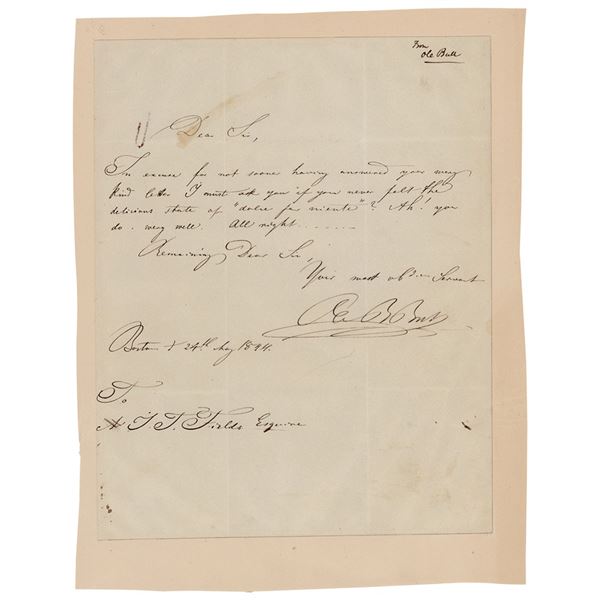 From
Ole Bull
Dear Sir,
In excuse for not sooner having answered your very
kind letter I must ask you if you never felt the
delicious state of "dolce far niente"? Ah! you
do.. very well. All right......
Remaining Dear Sir,
Your most obdien Servant
Ole B Bull
Boston 24th May 1844.
To
J. T. Fields Esquire